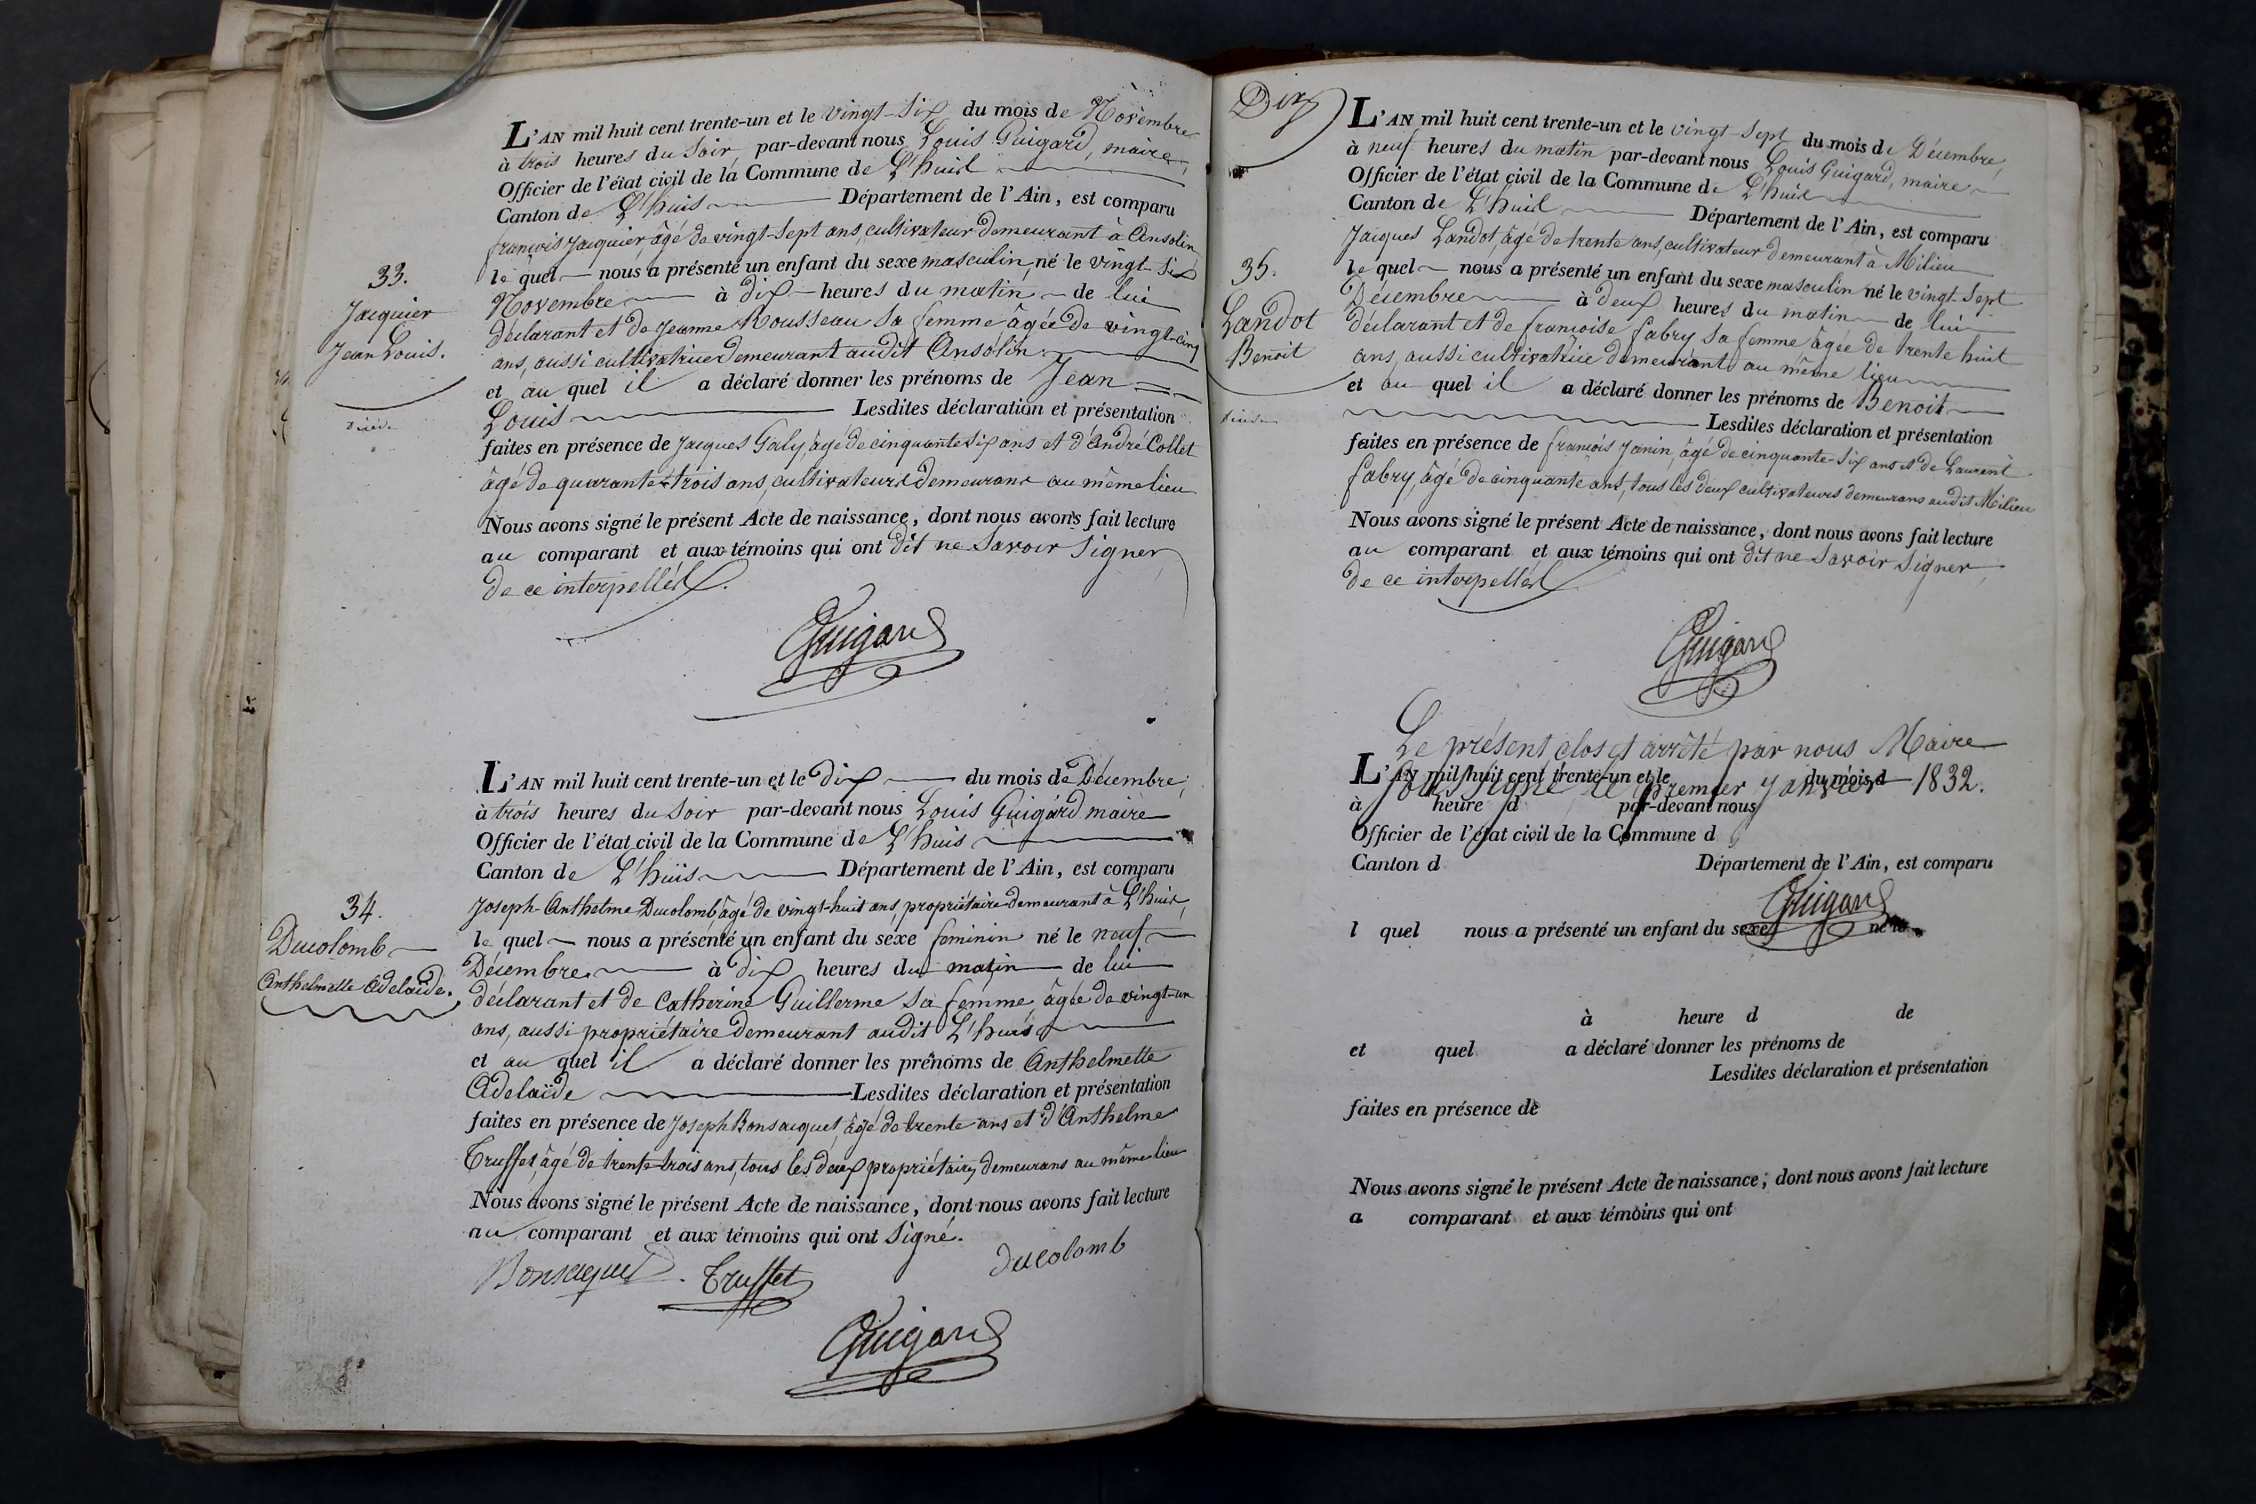 L'AN mil huit cent trente-un et le vingt-six du mois de Novembre
à trois heures du soir par-devant nous Louis Guigard, maire,
Officier de l'état civil de la Commune de L'huis
Canton de L'huis Département de l'Ain, est comparu
françois Jacquier, âgé de vingt-sept ans, cultivateur demeurant à Ansolin
le quel nous a présenté un enfant du sexe masculin, né le vingt-six
Novembre à dix heures du matin de lui
déclarant et de Jeanne Rousseau sa femme âgée de vingt-cinq
ans, aussi cultivatrice demeurant audit Ansolin
et au quel il a déclaré donner les prénoms de Jean =
Louis Lesdites déclaration et présentation
faites en présence de Jacques Galy, âgé de cinquante six ans et d'André Collet
âgé de quarante-trois ans, cultivateurs demeurans au même lieu
Nous avons signé le présent Acte de naissance, dont nous avons fait lecture
au comparant et aux témoins qui ont dit ne savoir signer,
de ce interpellés.
Guigard
33.
Jacquier
Jean Louis.
L'AN mil huit cent trente-un et le dix du mois de Décembre,
à trois heures du soir par-devant nous Louis Guigard maire
Officier de l'état civil de la Commune de L'huis
Canton de L'huis Département de l'Ain, est comparu
Joseph-Anthelme Ducolomb âgé de vingt-huit ans, propriétaire demeurant à L'huis,
le quel nous a présenté un enfant du sexe féminin né le neuf
Décembre à dix heures du matin de lui
déclarant et de Catherine Guillerme sa femme âgée de vingt-un
ans, aussi propriétaire demeurant audit L'huis
et au quel il a déclaré donner les prénoms de Anthelmette
Adelaïde Lesdites déclaration et présentation
faites en présence de Joseph Bonsacquet, âgé de trente ans et d'Anthelme
Truffet, âgé de trente-trois ans, tous les deux propriétaires demeurans au même lieu
Nous avons signé le présent Acte de naissance, dont nous avons fait lecture
au comparant et aux témoins qui ont signé.
Bonsacquet Truffet ducolomb
Guigard
34.
Ducolomb
Anthelmette Adelaïde.
L'AN mil huit cent trente-un et le vingt-sept du mois de Décembre,
à neuf heures du matin par-devant nous Louis Guigard, maire
Officier de l'état civil de la Commune de L'huis
Canton de L'huis Département de l'Ain, est comparu
Jacques Landot, âgé de trente ans, cultivateur demeurant à Milieu
le quel nous a présenté un enfant du sexe masculin né le vingt-sept
Décembre à deux heures du matin de lui
déclarant et de françoise fabry sa femme âgée de trente huit
ans, aussi cultivatrice demeurant au même lieu
et au quel il a déclaré donner les prénoms de Benoit
Lesdites déclaration et présentation
faites en présence de françois Janin, âgé de cinquante-six ans et de Laurent
fabry, âgé de cinquante ans, tous les deux cultivateurs demeurans audit Milieu
Nous avons signé le présent Acte de naissance, dont nous avons fait lecture
au comparant et aux témoins qui ont dit ne savoir signer
de ce interpellés
Guigard
35.
Landot
Benoit
Le présent clos et arrêté par nous Maire
soussigné le premier Janvier 1832.
Guigard
L'AN mil huit cent trente-un et le du mois d
à heure d par-devant nous
Officier de l'état civil de la Commune d
Canton d Département de l'Ain, est comparu
l quel nous a présenté un enfant du sexe né le
à heure d de
et quel a déclaré donner les prénoms de
Lesdites déclaration et présentation
faites en présence de
Nous avons signé le présent Acte de naissance, dont nous avons fait lecture
a comparant et aux témoins qui ont